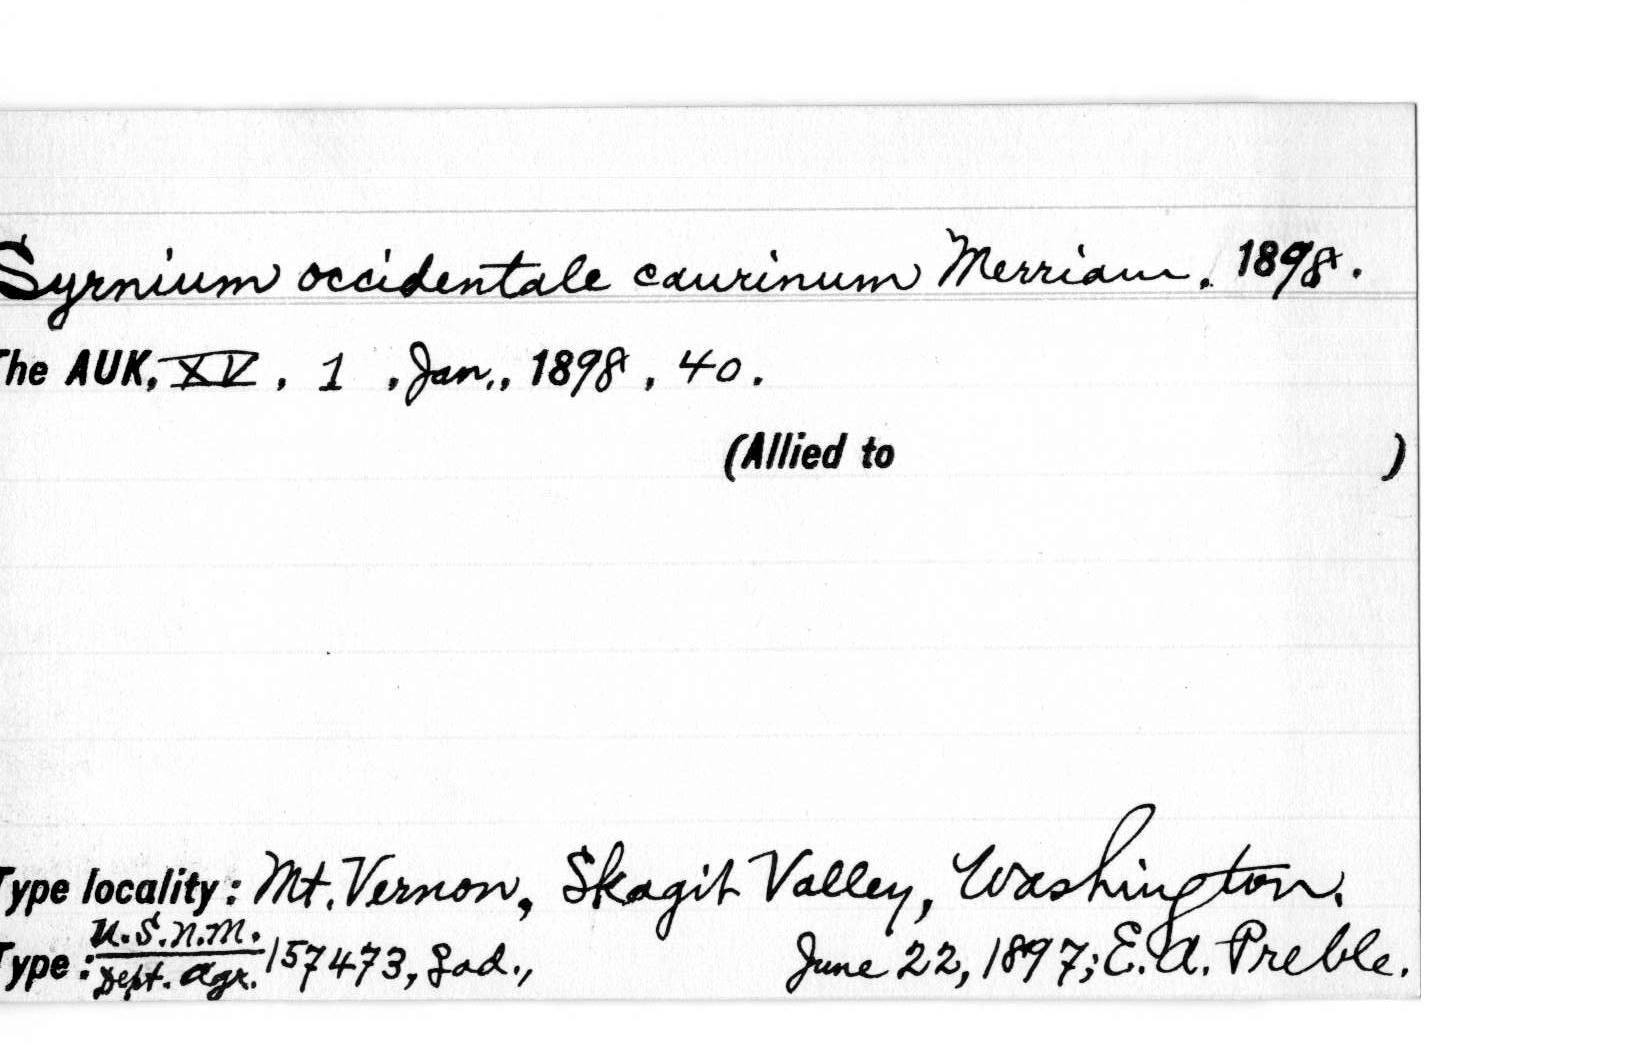 Syrnium occidentale caurinum Merriam, 1898.
The AUK, XV, 1, Jan., 1898, 40.
(Allied to )
Type locality: Mt. Vernon, Skagit Valley, Washington.
U.S.N.M.
Type: 157473, ♀ad., June 22, 1897; E. A. Preble.
Dept. Agr.